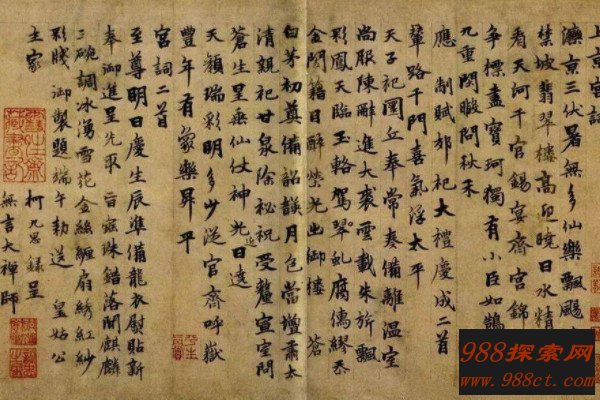 上京宮詞
灤京三伏暑無多仙樂飄颺
禁坡翡翠樓高回曉日水精
看天河千官錫宴齊宮錦
爭摽盡寶珂獨有小臣如鵠
九重閤殿問秋禾
應制賦郊祀大禮慶成二首
輦路千門喜氣浮太平
天子祀圜丘奉常奏備離温室
尚服陳辭進大裘雲載朱旂飄
彩鳳天臨玉輅駕翠虬腐儒繆忝
金閨籍目醉榮光出御樓 蒼
白茅初奠備韶頀月色當壇肅太
清親祀甘泉除祕祝受釐宣室問
蒼生星垂仙仗神光近日遶
天顔瑞彩明多少從官齊呼嶽
豐年有象樂昇平
宮詞二首
至尊明日慶生辰準備龍衣熨貼新
奉御進呈先取旨寶珠錯落閒麒麟
三碗調冰湧雪花金絲纏扇綉紅紗
彩牋御製題端午勑送 皇姑公
主家
柯九思録呈
無言大禪師
988探索网
www.988ct.com